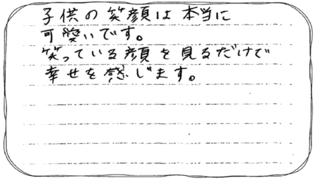 子供の笑顔は本当に
可愛いです。
笑っている顔を見るだけで
幸せを感じます。